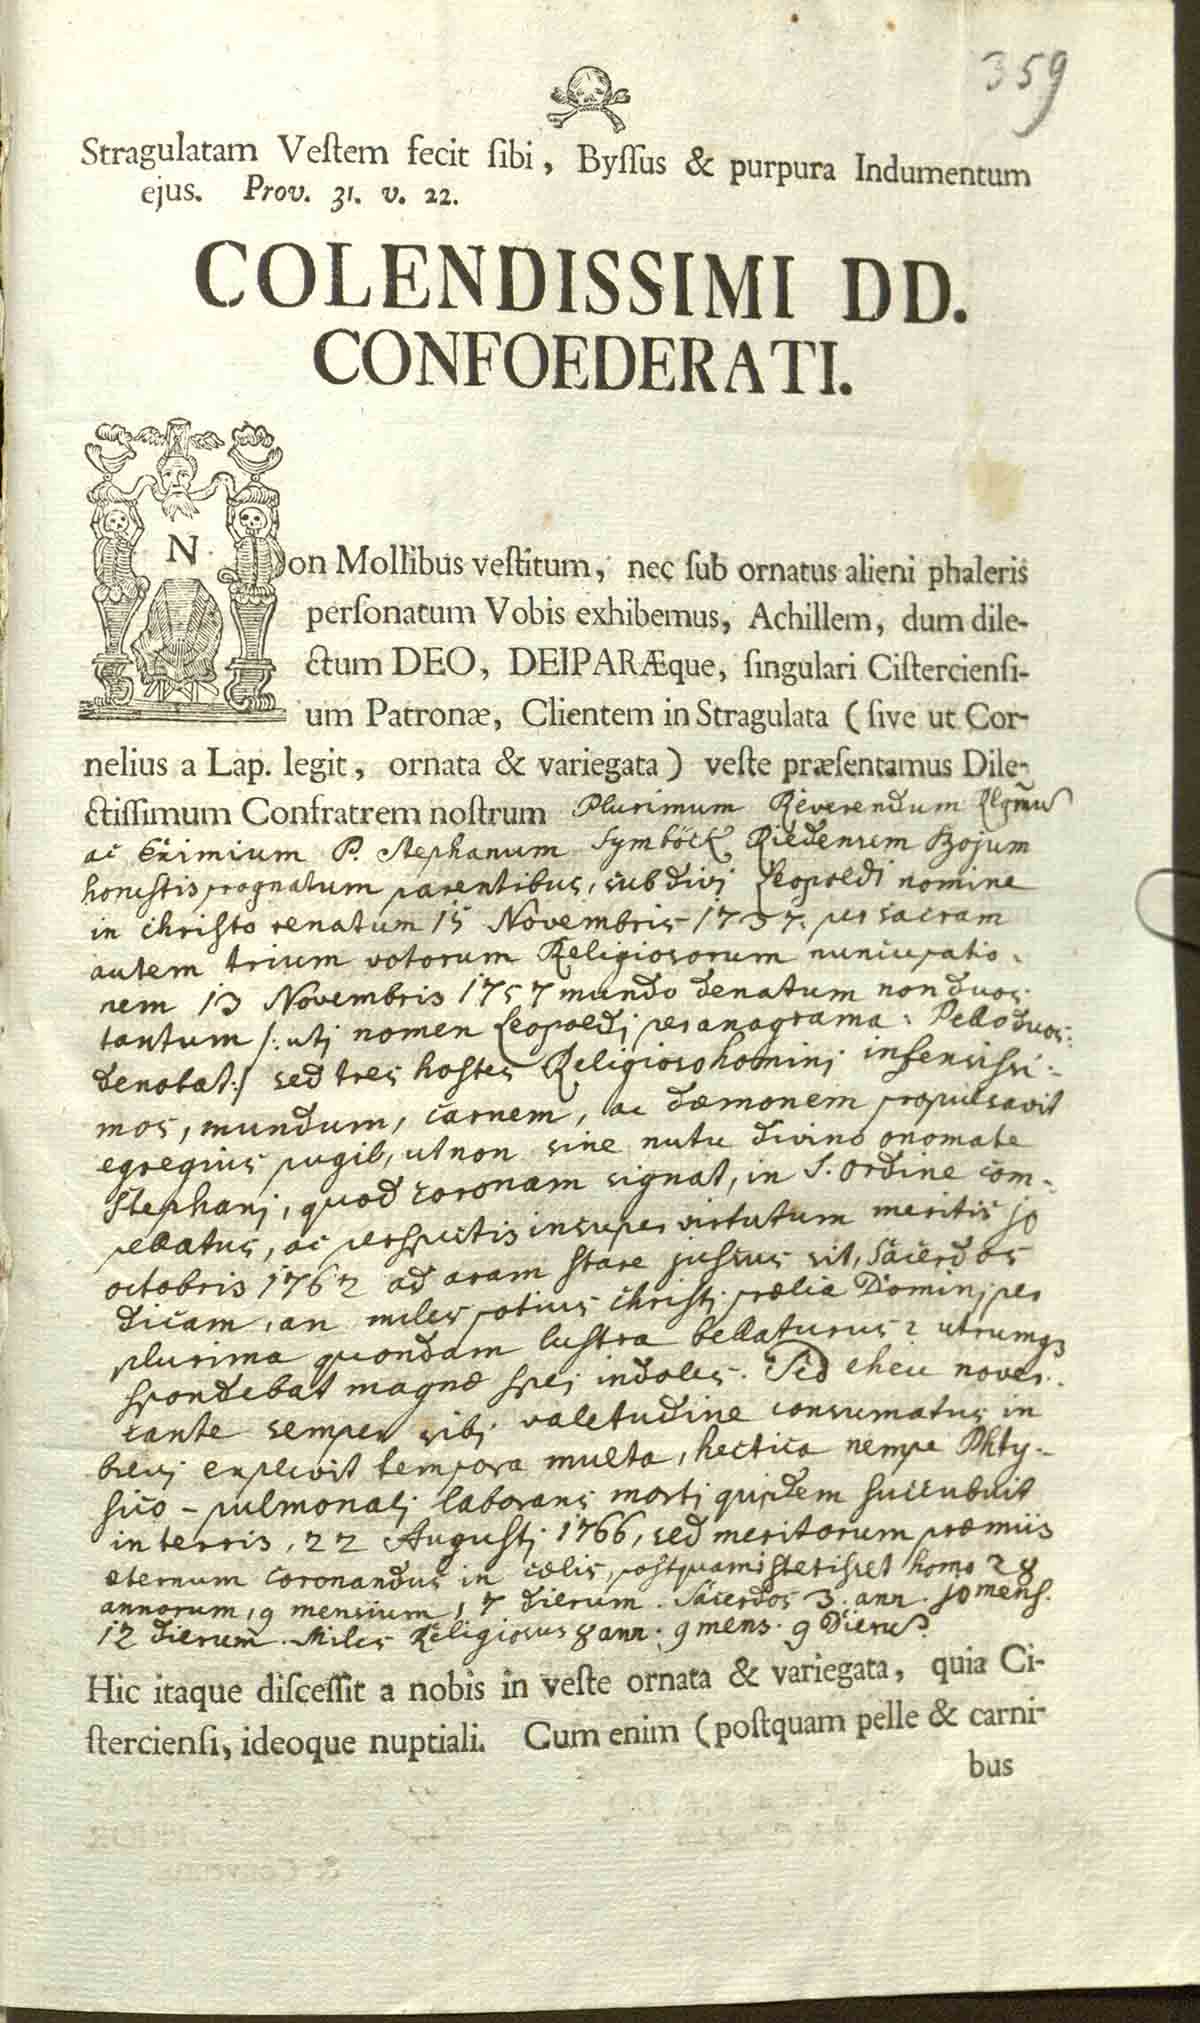 359
Stragulatam Veſtem fecit ſibi, Byſſus & purpura Indumentum
ejus. Prov. 31. v. 22.
COLENDISSIMI DD.
CONFOEDERATI.
Non Mollibus veſtitum, nec ſub ornatus alieni phaleris
perſonatum Vobis exhibemus, Achillem, dum dile-
ctum DEO, DEIPARÆque, ſingulari Ciſtercienſi-
um Patronæ, Clientem in Stragulata (ſive ut Cor-
nelius a Lap. legit, ornata & variegata) veſte præſentamus Dile-
ctiſſimum Confratrem noſtrum Plurimum Reverendum
ac Eximium P. Stephanum Symböck Riedensem Bojum
honestis prognatum parentibus, sub divi Leopoldi nomine
in Christo renatum 15 Novembris 1737. per sacram
autem trium votorum Religiosorum nuncupatio-
nem 13 Novembris 1757 mundo denatum non duos
tantum /: utj nomen Leopoldj per anagrama: Pello duos:
denotat:/ sed tres hostes Religioso hominj infensissi-
mos, mundum, carnem, ac dæmonem propulsavit
egregius pugil, ut non sine nutu divino onomate
Stephanj, quod coronam signat, in S. Ordine com-
pellatus, ac perspectis insuper virtutum meritis 10
octobris 1762 ad aram stare jussus sit, Sacerdos
dicam, an miles potius Christj prælia Dominj per
plurima quondam lustra bellaturus? utrumq3
spondebat magnæ spej indoles. Sed eheu nover-
cante semper sibj valetudine consumatus in
brevj explevit tempora multa, hectica nempe Phty-
sico-pulmonalj laborans mortj quidem succubuit
in terris, 22 Augustj 1766, sed meritorum præmiis
æternum coronandus in cælis, postquam stetisset homo 28
annorum, 9 mensium, 7 dierum. Sacerdos 3. ann. 10 mens.
12 dierum. Miles Religiosus 8 ann. 9 mens. 9 Dieru.
Hic itaque diſceſſit a nobis in veſte ornata & variegata, quia Ci-
ſtercienſi, ideoque nuptiali. Cum enim (poſtquam pelle & carni-
bus